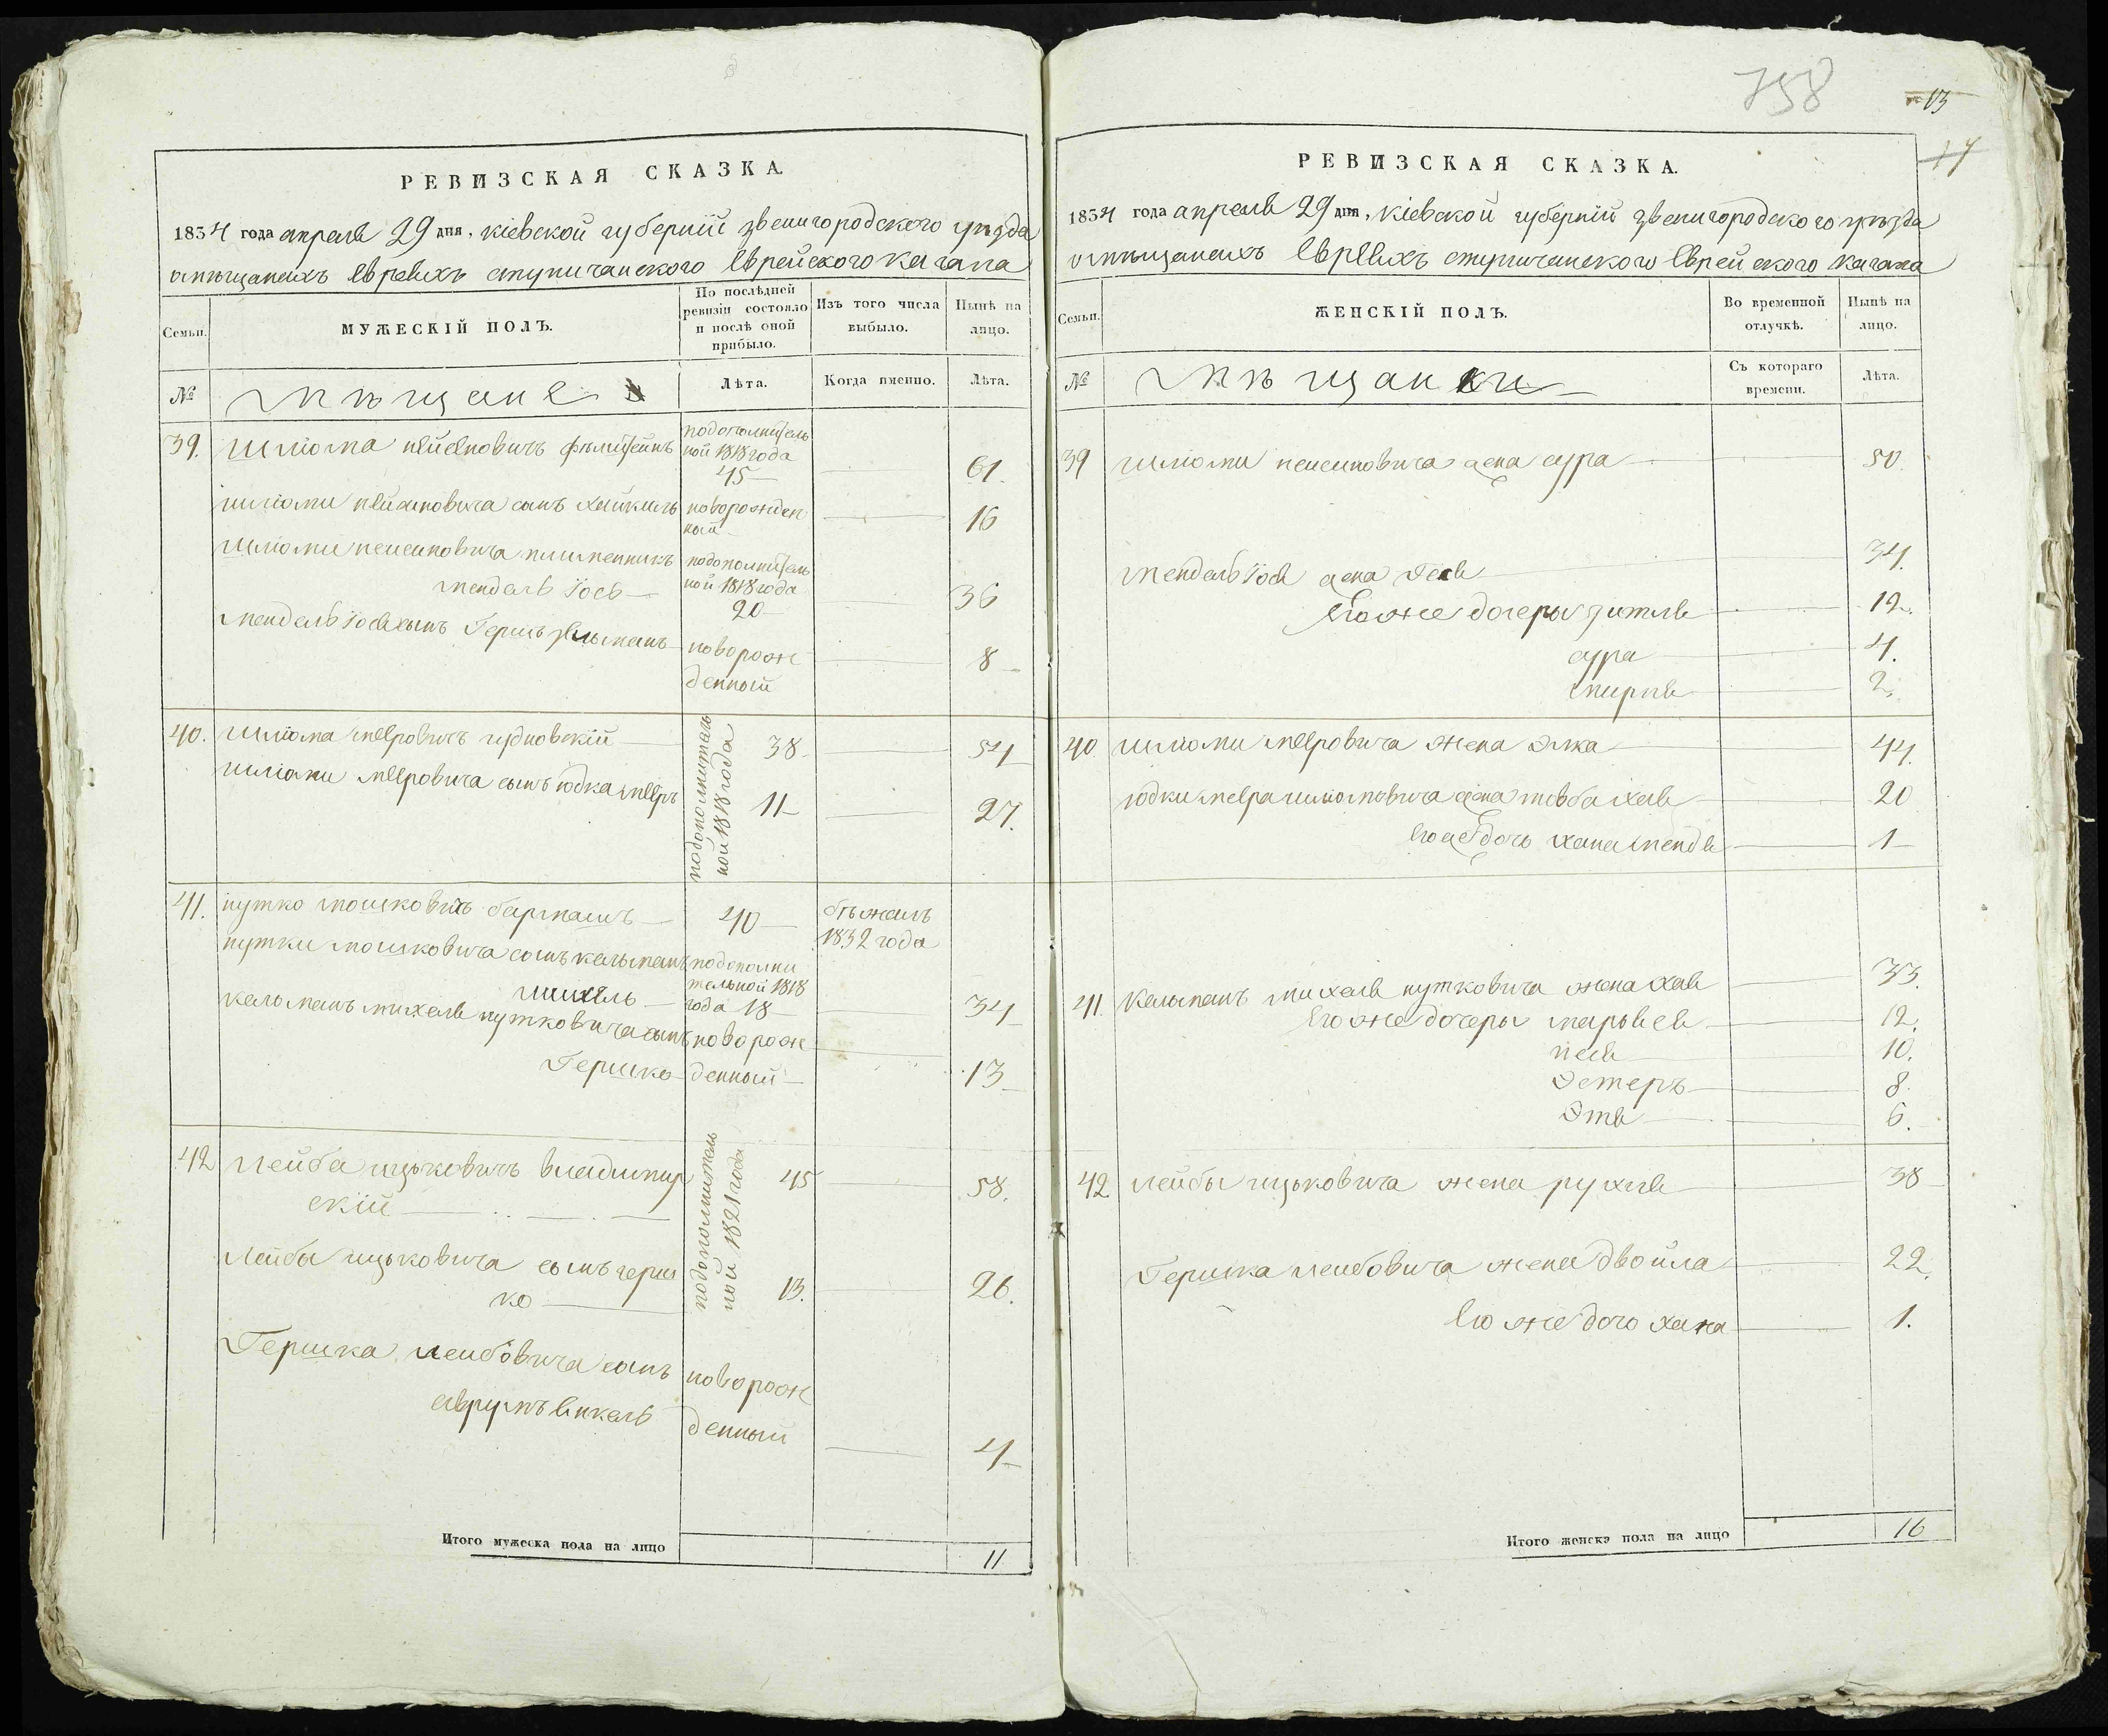 758
13
17
РЕВИЗСКАЯ СКАЗКА.
1834 года апреля 29 дня, кіевской губерніи звенигородского уезда
омѣщанахъ Евреяхъ ступичанского Еврейского кагала
Семьи.
МУЖЕСКІЙ ПОЛЪ.
По послѣдней ревизіи состояло и послѣ оной прибыло.
Изъ того числа выбыло.
Нынѣ на лицо.
№
мѣщане
Лѣта.
Когда именно.
Лѣта.
39. Шліома пейсановичъ подополнительной 1818 года 45 61.
шліоми пейсановича сынъ хайкель новорожденный 16
Шліоми пейсановича племенникъ мендель Іось подополнительной 1818 года 20 36
мендель Іося сынъ Гершъ зельманъ новорожденный 8
40. Шліома меeровичъ чудновскій подополнительной 1818 года 38 54
шліоми меeровича сынъ юдка мееръ 11 27.
41. нутко мошковичъ 40 бѣжалъ 1832 года
нутки мошковича сынъ кальманъ михель подополнительной 1818 года 18 34
кальманъ михеля нутковича сынъ Гершко новорожденный 13
42 Лейба ицьковичъ владимирскій подополнительной 1821 года 45 58.
Лейбы ицьковича сынъ гершко 13. 26.
Гершка лейбовича сынъ аврумъ новорожденный 4
Итого мужеска пола на лицо 11
РЕВИЗСКАЯ СКАЗКА.
1834 года апреля 29 дня, кіевской губерніи звенигородского уѣзда
омѣщанахъ Евреяхъ ступичанского Еврейского кагала
Семьи.
ЖЕНСКІЙ ПОЛЪ.
Во временной отлучкѣ.
Нынѣ на лицо.
№
мѣщанки
Съ котораго времени.
Лѣта.
39 шліоми пейсановича жена сура 50.
мендель Іося жена 34.
Егоже дочеры зитля 12.
сура 4.
2.
40 шліоми меeровича жена Элка 44.
юдки меера шліомовича жена товба хая 20
его же дочь хана 1
41. Кальманъ михеля нутковича жена хая 33.
Его же дочеры 12.
песя 10.
Эстеръ 8.
Этя 6.
42 лейбы ицьковича жена рухля 38
Гершка лейбовича жена двойла 22.
Его же дочь хана 1.
Итого женска пола на лицо 16